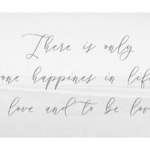 There is only
one happines in life
love and to be lov